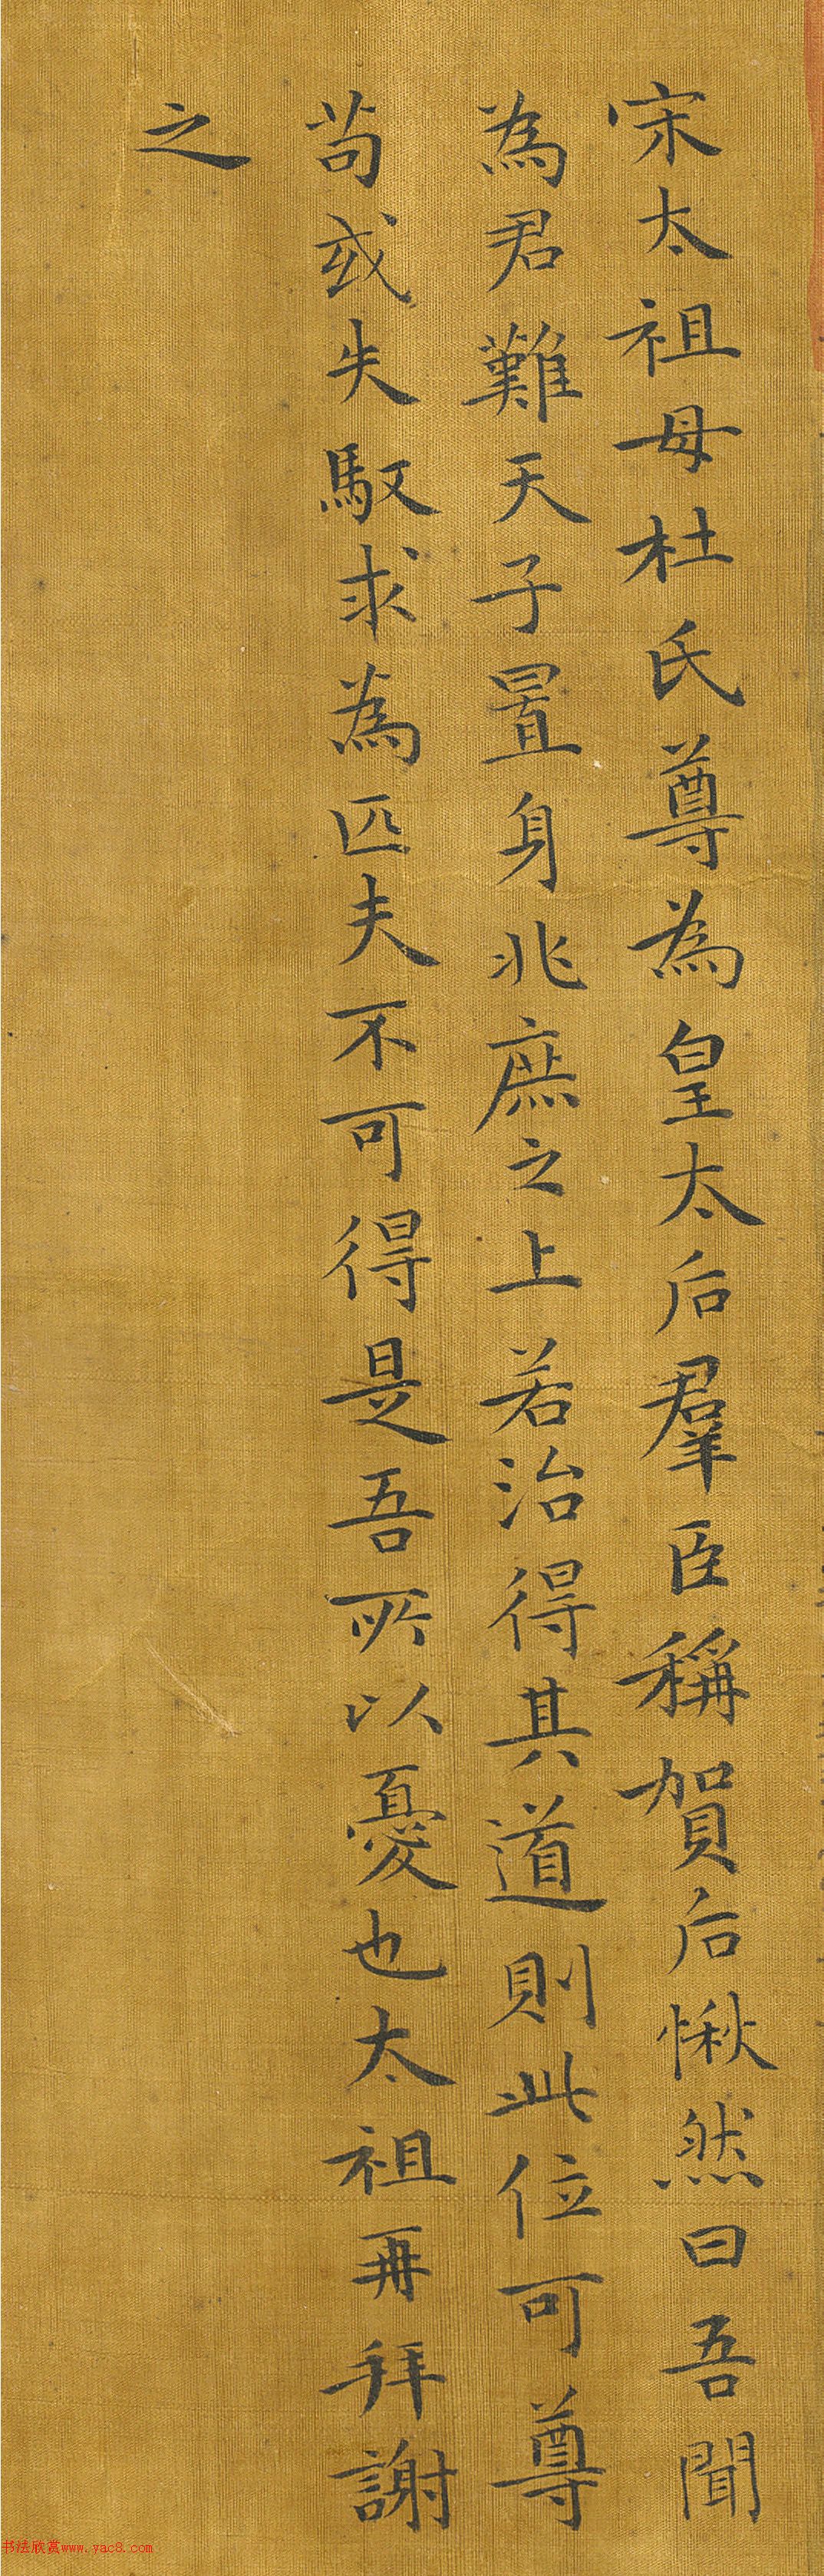 宋太祖母杜氏尊為皇太后羣臣稱賀后愀然曰吾聞
為君難天子置身兆庶之上若治得其道則此位可尊
苟或失馭求為匹夫不可得是吾所以憂也太祖再拜謝
之
书法欣赏www.yac8.com